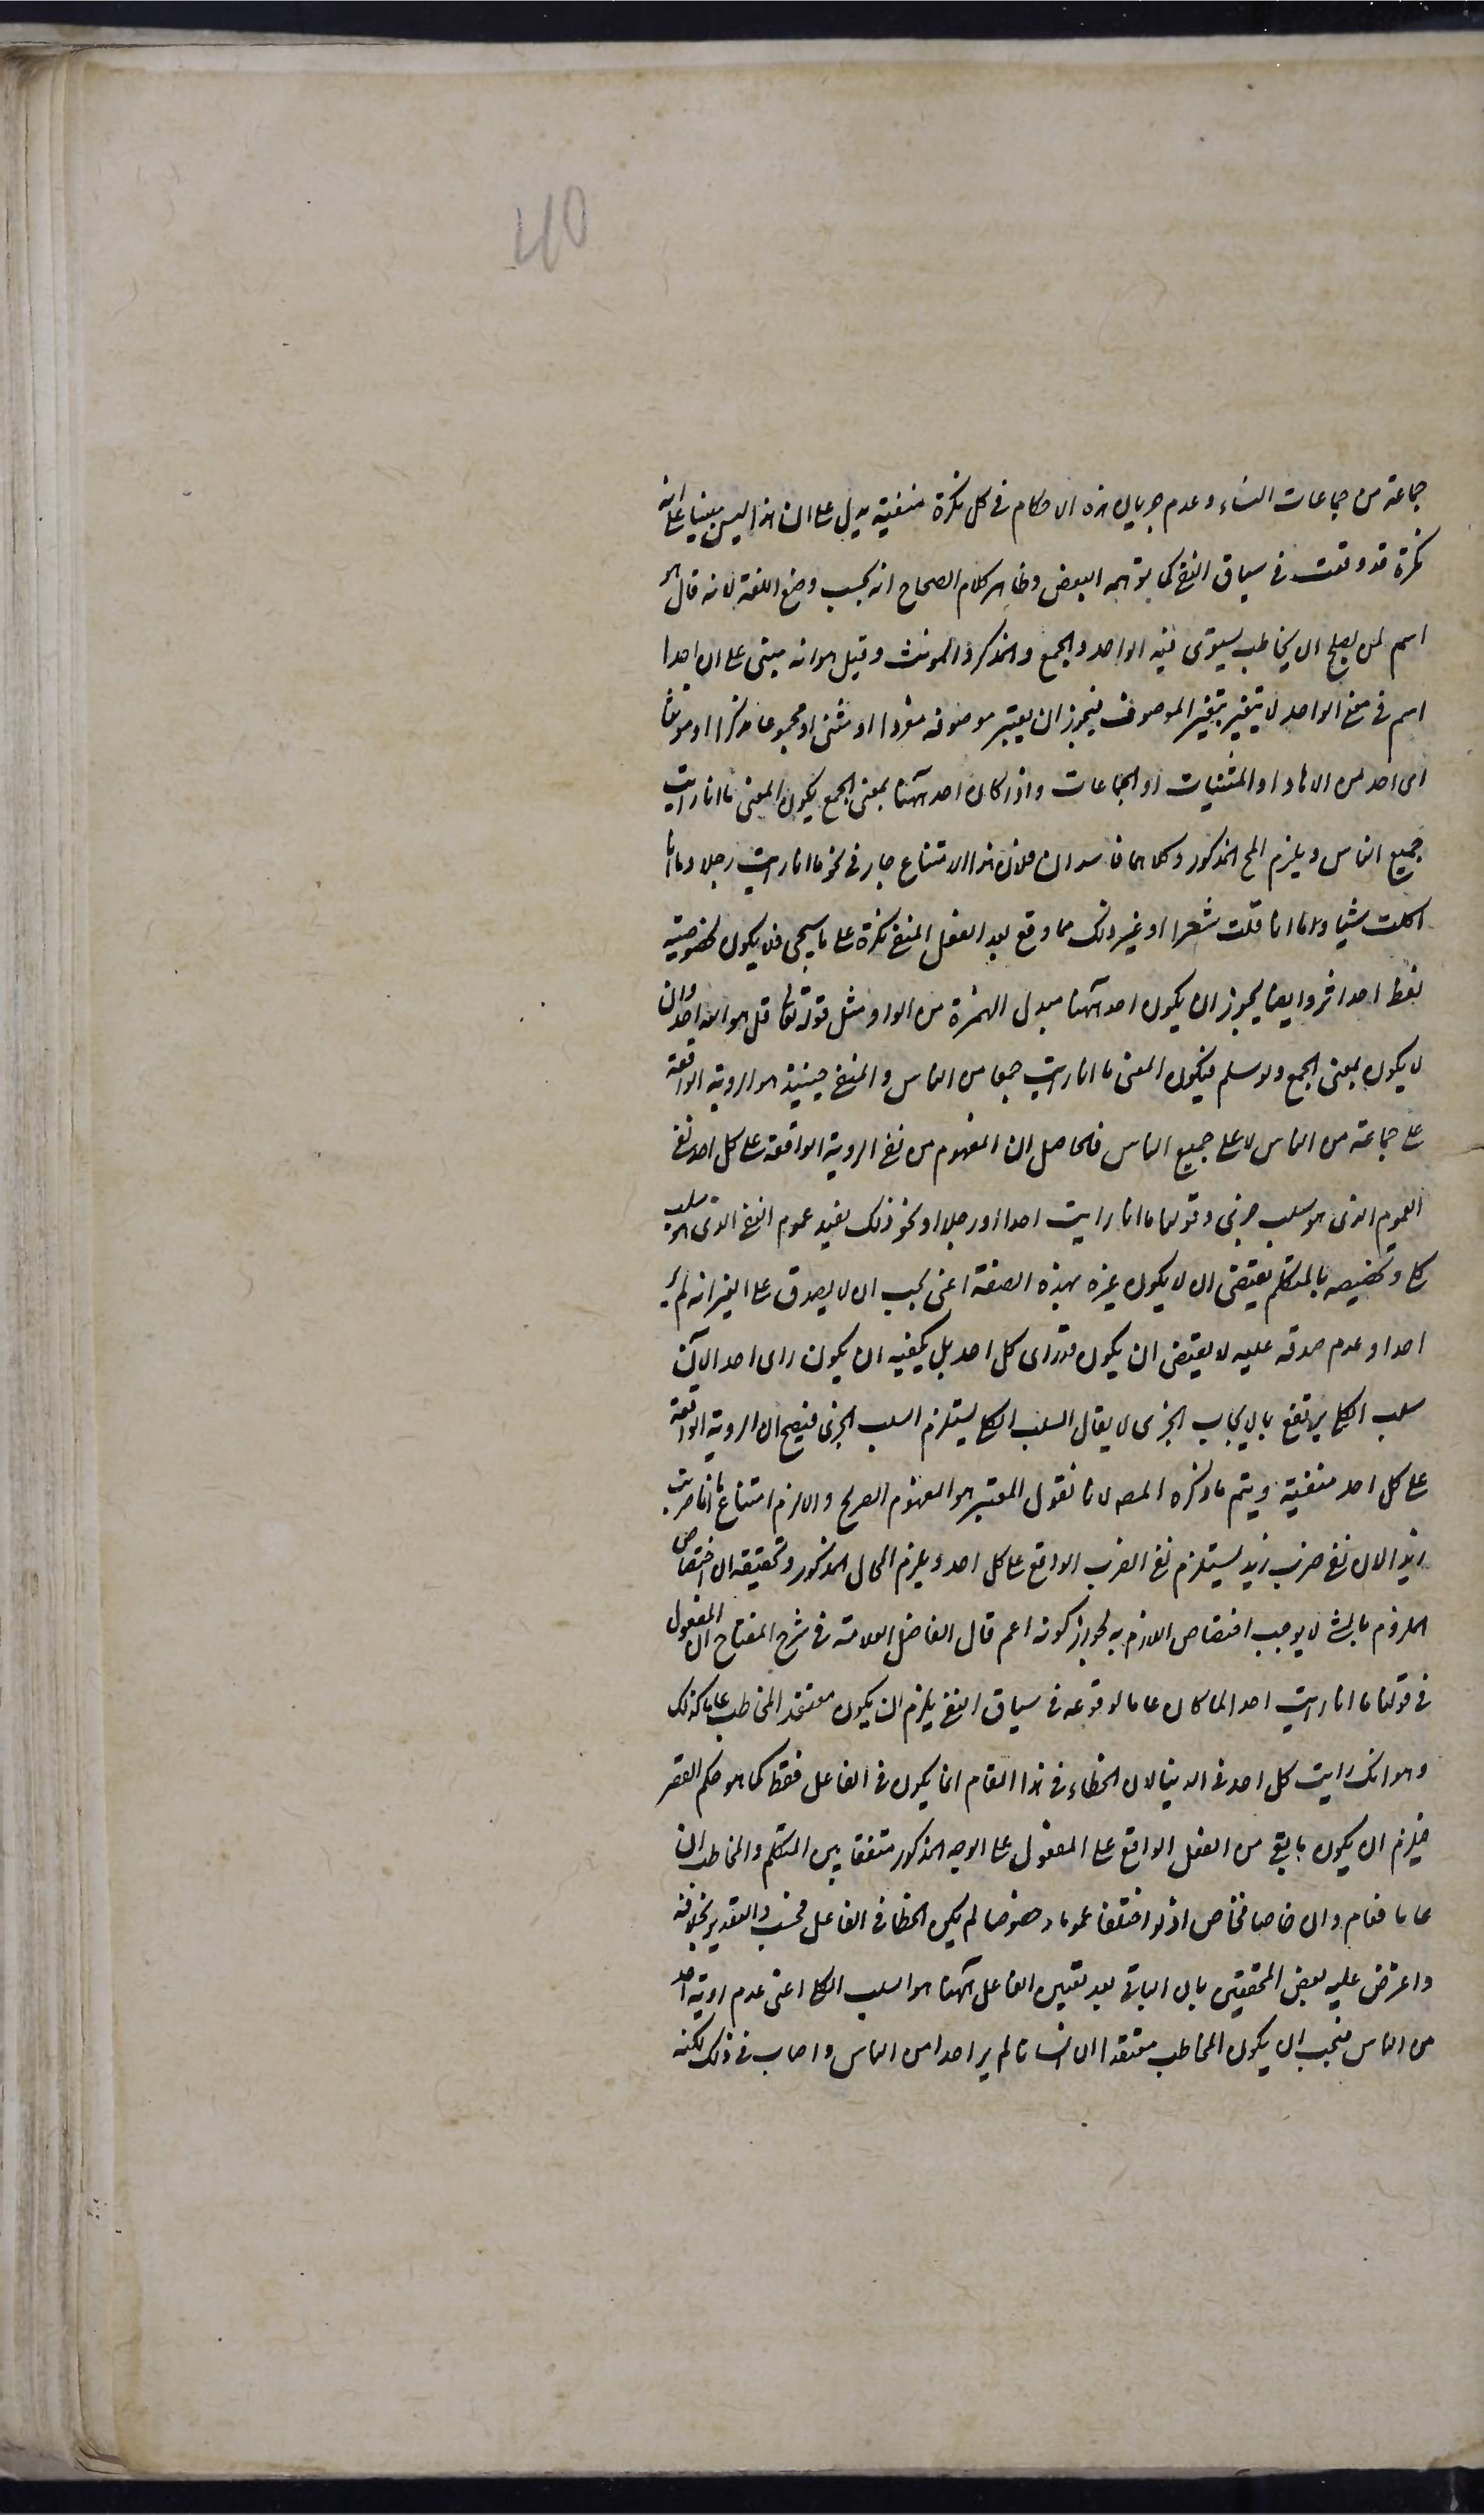 40
جماعة من جماعات النساء وعدم جريان هذه الاحكام في كل نكرة منفية يدل على ان هذا ليس مبنيا على انه
نكرة قد وقعت في سياق النفي كما توهمه البعض وظاهر كلام الصحاح انه بحسب وضع اللغة لانه قال هو
اسم لمن يصلح ان يخاطب يستوى فيه الواحد والجمع والمذكر والمونث وقيل هو انه مبنى على ان احدا
اسم في معنى الواحد لا يتغير بتغير الموصوف فيجوز ان يعتبر موصوفه مفردا او مثنى او مجموعا مذكرا او مونثا
اى احد من الاحاد او المثنيات او الجماعات واذا كان احد ههنا بمعنى الجمع يكون المعنى ما انا رايت
جميع الناس ويلزم المح المذكور وكلاهما فاسدان فلان هذا الامتناع جار في نحو ما انا رايت رجلا وما انا
اكلت شيا وما انا قلت شعرا او غير ذلك مما وقع بعد الفعل المنفي نكرة على ما سيجى فلا يكون لخصوصية
لفظ احد اثر وايضا يجوز ان يكون احد ههنا مبدل الهمزة من الواو مثل قوله تعا قل هو الله احد وان
لا يكون بمعنى الجمع ولو سلم فيكون المعنى ما انا رايت جمعا من الناس والمنفي حينئذ هو الروية الواقعة
على جماعة من الناس لا على جميع الناس فالحاصل ان المفهوم من نفي الروية الواقعة على كل احد نفي
العموم الذى هو سلب جزئى وقولنا ما انا رايت احدا او رجلا او نحو ذلك يفيد عموم النفي الذى هو سلب
كلى وتخصيصه بالمتكلم يقتضى ان لا يكون غيره بهذه الصفة اعنى يجب ان لا يصدق على الغير انه لم ير
احدا وعدم صدقه عليه لا يقتضى ان يكون قد راى كل احد بل يكفيه ان يكون راى احدا لان
سلب الكلى يرتفع بالايجاب الجزى لا يقال السلب الكلى يستلزم السلب الجزى فيصح ان الروية الواقعة
على كل احد منفية ويتم ما ذكره المصه لانا نقول المعتبر هو المفهوم الصريح والا لزم امتناع ما انا ضربت
زيدا لان نفي ضرب زيد يستلزم نفي الضرب الواقع على كل احد ويلزم المحال المذكور وتحقيقه ان اختصاص
الملزوم بالشئ لا يوجب اختصاص اللازم به لجواز كونه اعم قال الفاضل العلامة في شرح المفتاح ان المفعول
في قولنا ما انا رايت احدا لما كان عاما لوقوعه في سياق النفي يلزم ان يكون معتقد المخاطب عاما كذلك
وهو انك رايت كل احد في الدنيا لان الخطاء في هذا المقام انما يكون في الفاعل فقط كما هو حكم القصر
فيلزم ان يكون ما بقى من الفعل الواقع على المفعول على الوجه المذكور متفقا بين المتكلم والمخاطب ان
عاما فعام وان خاصا فخاص اذ لو اختلفا عموما وخصوصا لم يكن الخطا في الفاعل فحسب والتقدير بخلافه
واعترض عليه بعض المحققين بان الباقى بعد تعيين الفاعل ههنا هو السلب الكلى اعنى عدم روية احد
من الناس فيجب ان يكون المخاطب معتقدا ان انسانا لم ير احدا من الناس واصاب في ذلك لكنه